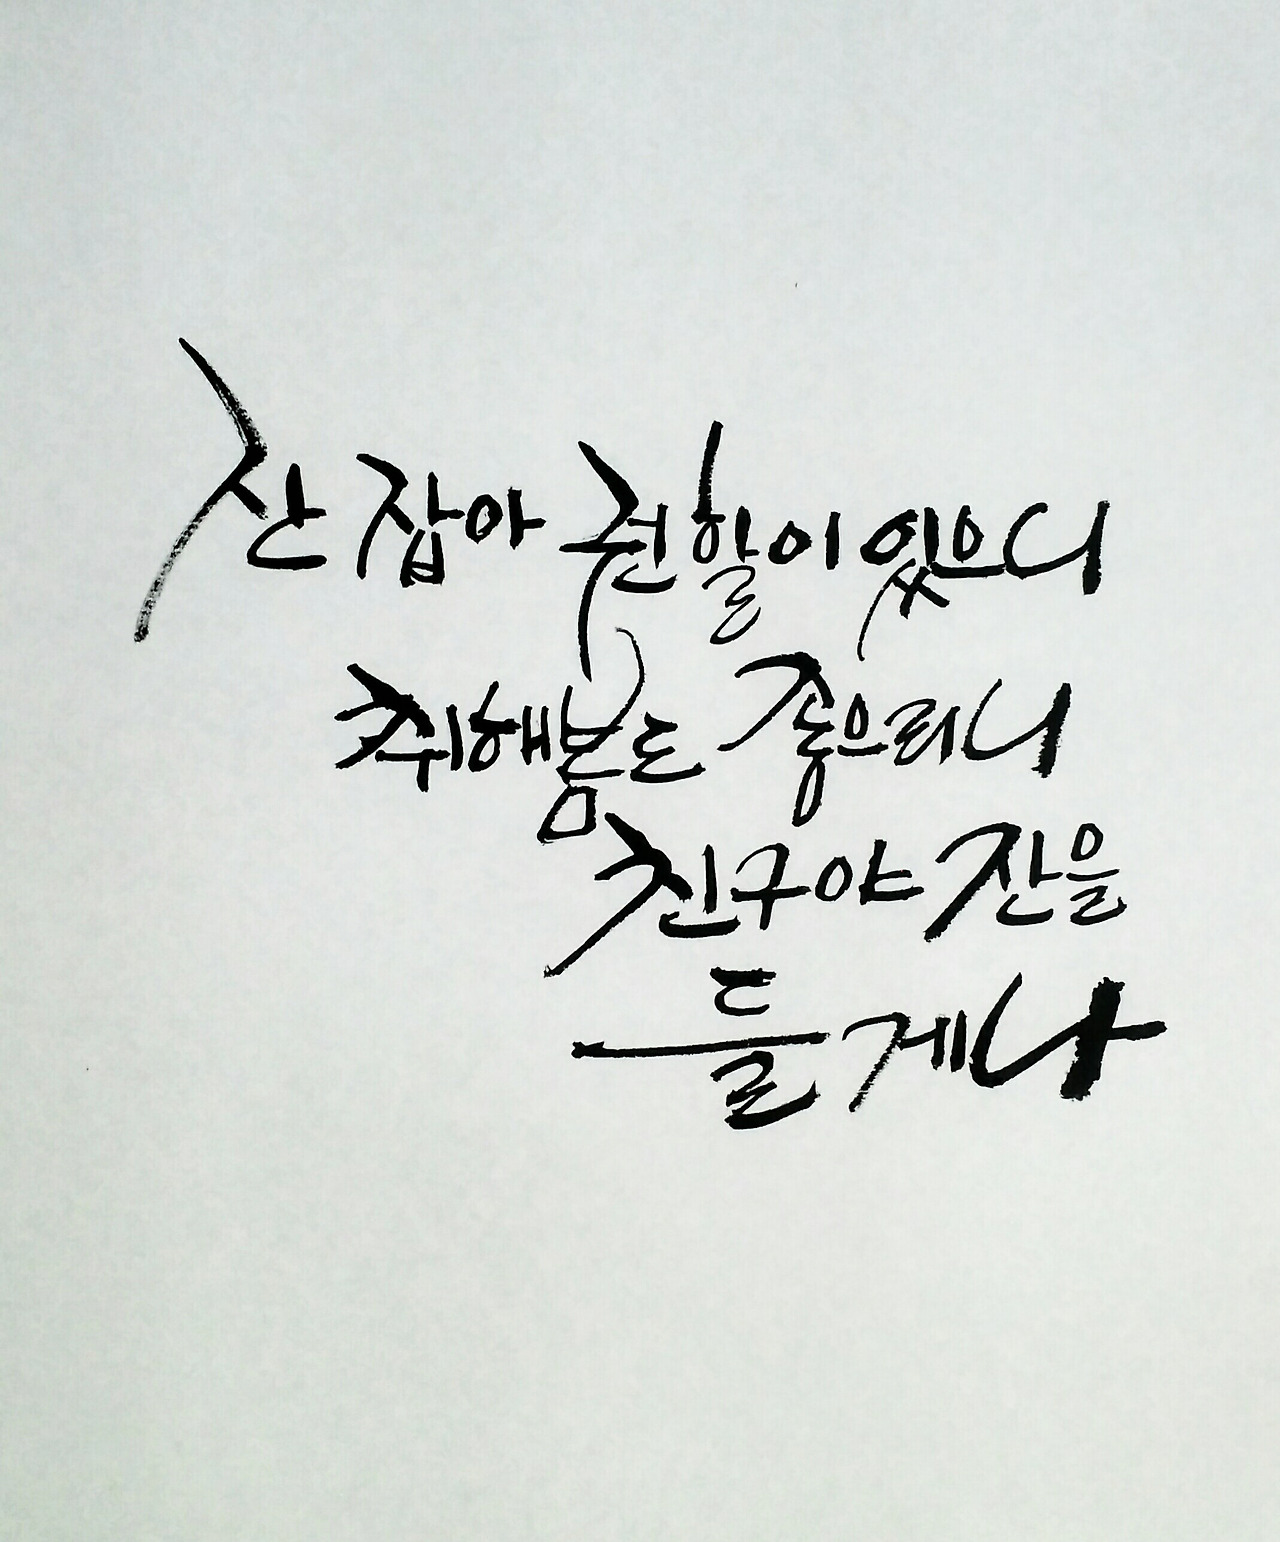 잔 잡아 권할이 있으니
취해봄도 좋으리니
친구야 잔을
들게나